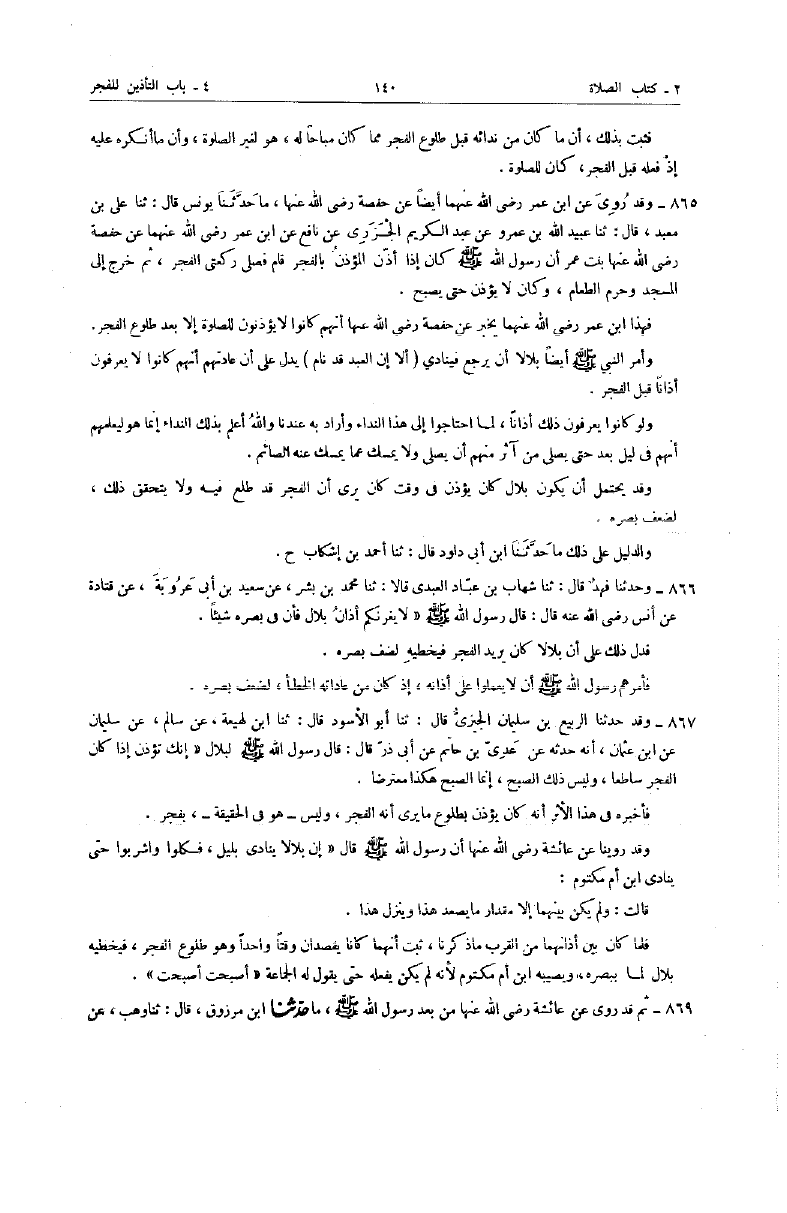 ٢ ـ كتاب الصلاة ١٤٠ ٤ ـ باب التأذين للفجر
فثبت بذلك ، أن ما كان من ندائه قبل طلوع الفجر مما كان مباحاً له ، هو لغير الصلوة ، وأن ماأنكره عليه
إذ فعله قبل الفجر، كان للصلوة .
٨٦٥ ـ وقد رُوِىَ عن ابن عمر رضى الله عنهما أيضاً عن حفصة رضى الله عنها ، ما حَدَّثَنَا يونس قال : ثنا على بن
معبد ، قال : ثنا عبيد الله بن عمرو عن عبد الكريم الْجَزَرِى عن نافع عن ابن عمر رضى الله عنهما عن حفصة
رضى الله عنها بنت عمر أن رسول الله ﷺ كان إذا أذّن المؤذنُ بالفجر قام فصلى ركعتى الفجر ، ثم خرج إلى
المسجد وحرم الطعام ، وكان لا يؤذن حتى يصبح .
فهذا ابن عمر رضى الله عنهما يخبر عن حفصة رضى الله عنها أنهم كانوا لايؤذنون للصلوة إلا بعد طلوع الفجر.
وأمر النبي ﷺ أيضاً بلالا أن يرجع فينادي ( ألا إن العبد قد نام ) يدل على أن عادتهم أنهم كانوا لا يعرفون
أذاناً قبل الفجر .
ولو كانوا يعرفون ذلك أذانًا ، لما احتاجوا إلى هذا النداء وأراد به عندنا واللهُ أعلم بذلك النداء إنما هو ليعلمهم
أنهم فى ليل بعد حتى يصلى من آثر منهم أن يصلى ولا يمسك عما يمسك عنه الصائم .
وقد يحتمل أن يكون بلال كان يؤذن فى وقت كان يرى أن الفجر قد طلع فيه ولا يتحقق ذلك ،
لضعف بصره .
والدليل على ذلك ما حَدَّثَنَا ابن أبى داود قال : ثنا أحمد بن إشكاب ح .
٨٦٦ ـ وحدثنا فهدٌ قال : ثنا شهاب بن عبّاد العبدى قالا : ثنا محمد بن بشر ، عن سعيد بن أبى عَرُوبَةَ ، عن قتادة
عن أنس رضى الله عنه قال : قال رسول الله ﷺ « لايغرنكم أذانُ بلال فأن فى بصره شيئاً .
فدل ذلك على أن بلالا كان يريد الفجر فيخطيه لضف بصره .
فأمرهم رسول الله ﷺ أن لايعملوا على أذانه ، إذ كان من عاداته الخطأ ، لضعف بصره .
٨٦٧ ـ وقد حدثنا الربيع بن سليمان الجيزىُّ قال : ثنا أبو الأسود قال : ثنا ابن لهيعة ، عن سالم ، عن سليمان
عن ابن عثمان ، أنه حدثه عن عَدِىّ بن حاتم عن أبى ذرّ قال : قال رسول الله ﷺ لبلال « إنك تؤذن إذا كان
الفجر ساطعا ، وليس ذلك الصبح ، إنما الصبح هكذا معترضا .
فأخبره فى هذا الأثر أنه كان يؤذن بطلوع مايرى أنه الفجر ، وليس ـ هو فى الحقيقة ـ ، بفجر .
وقد روينا عن عائشة رضى الله عنها أن رسول الله ﷺ قال « إن بلالا ينادى بليل ، فكلوا واشربوا حتى
ينادى ابن أم مكتوم :
قالت : ولم يكن بينهما إلا مقدار مايصعد هذا وينزل هذا .
فلما كان بين أذانهما من القرب ماذكرنا ، ثبت أنهما كانا يقصدان وقتاً واحداً وهو طلوع الفجر ، فيخطيه
بلال لما ببصره ، ويصيبه ابن أم مكتوم لأنه لم يكن يفعله حتى يقول له الجماعة « أصبحت أصبحت » .
٨٦٩ ـ ثم قد روى عن عائشة رضى الله عنها من بعد رسول الله ﷺ ، ما حدثنا ابن مرزوق ، قال : ثناوهب ، عن